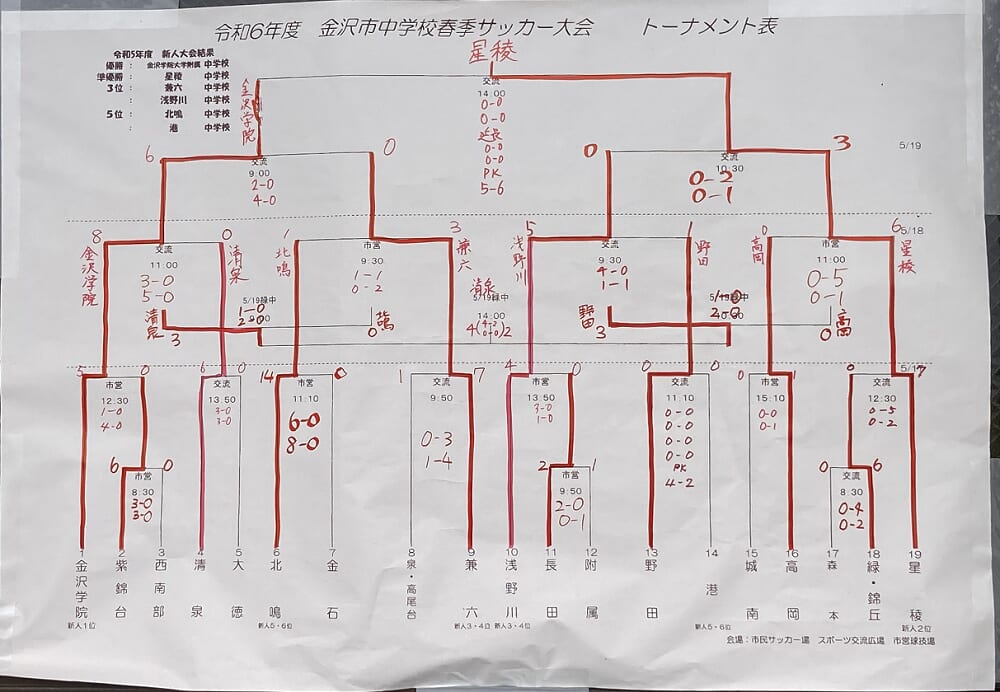 令和6年度 金沢市中学校春季サッカー大会 トーナメント表
令和5年度 新人大会結果
優勝 : 金沢学院大学附属 中学校
準優勝 : 星稜 中学校
3位 : 兼六 中学校
: 浅野川 中学校
5位 : 北鳴 中学校
: 港 中学校
星稜
金沢学院
交流
14:00
0-0
0-0
延長
0-0
0-0
PK
5-6
6 0 0 3 5/19
交流
9:00
2-0
4-0
交流
10:30
0-2
0-1
8 0 1 3 5 1 0 6 5/18
金沢学院 清泉 北鳴 兼六 浅野川 野田 高岡 星稜
交流
11:00
3-0
5-0
市営
9:30
1-1
0-2
交流
9:30
4-0
1-1
市営
11:00
0-5
0-1
5/19緑中
1-0
清泉
5/19緑中
14:00
清泉 3
北鳴 0
野田 3
高岡 0
5 0 6 0 14 0 1 7 4 0 0 0 0 1 0 7
市営
12:30
1-0
4-0
交流
13:50
3-0
3-0
市営
11:10
6-0
8-0
交流
9:50
0-3
1-4
市営
13:50
3-0
1-0
交流
11:10
0-0
0-0
0-0
0-0
PK
4-2
市営
15:10
0-0
0-1
交流
12:30
0-5
0-2
6 0
市営
8:30
3-0
3-0
2 1
市営
9:50
2-0
0-1
0 6
交流
8:30
0-4
0-2
1 2 3 4 5 6 7 8 9 10 11 12 13 14 15 16 17 18 19
金沢学院
紫錦台
西南部
清泉
大徳
北鳴
金石
泉・高尾台
兼六
浅野川
長田
附属
野田
港
城南
高岡
森本
緑・錦丘
星稜
新人1位 新人5・6位 新人3・4位 新人3・4位 新人5・6位 新人2位
会場：市民サッカー場 スポーツ交流広場 市営球技場